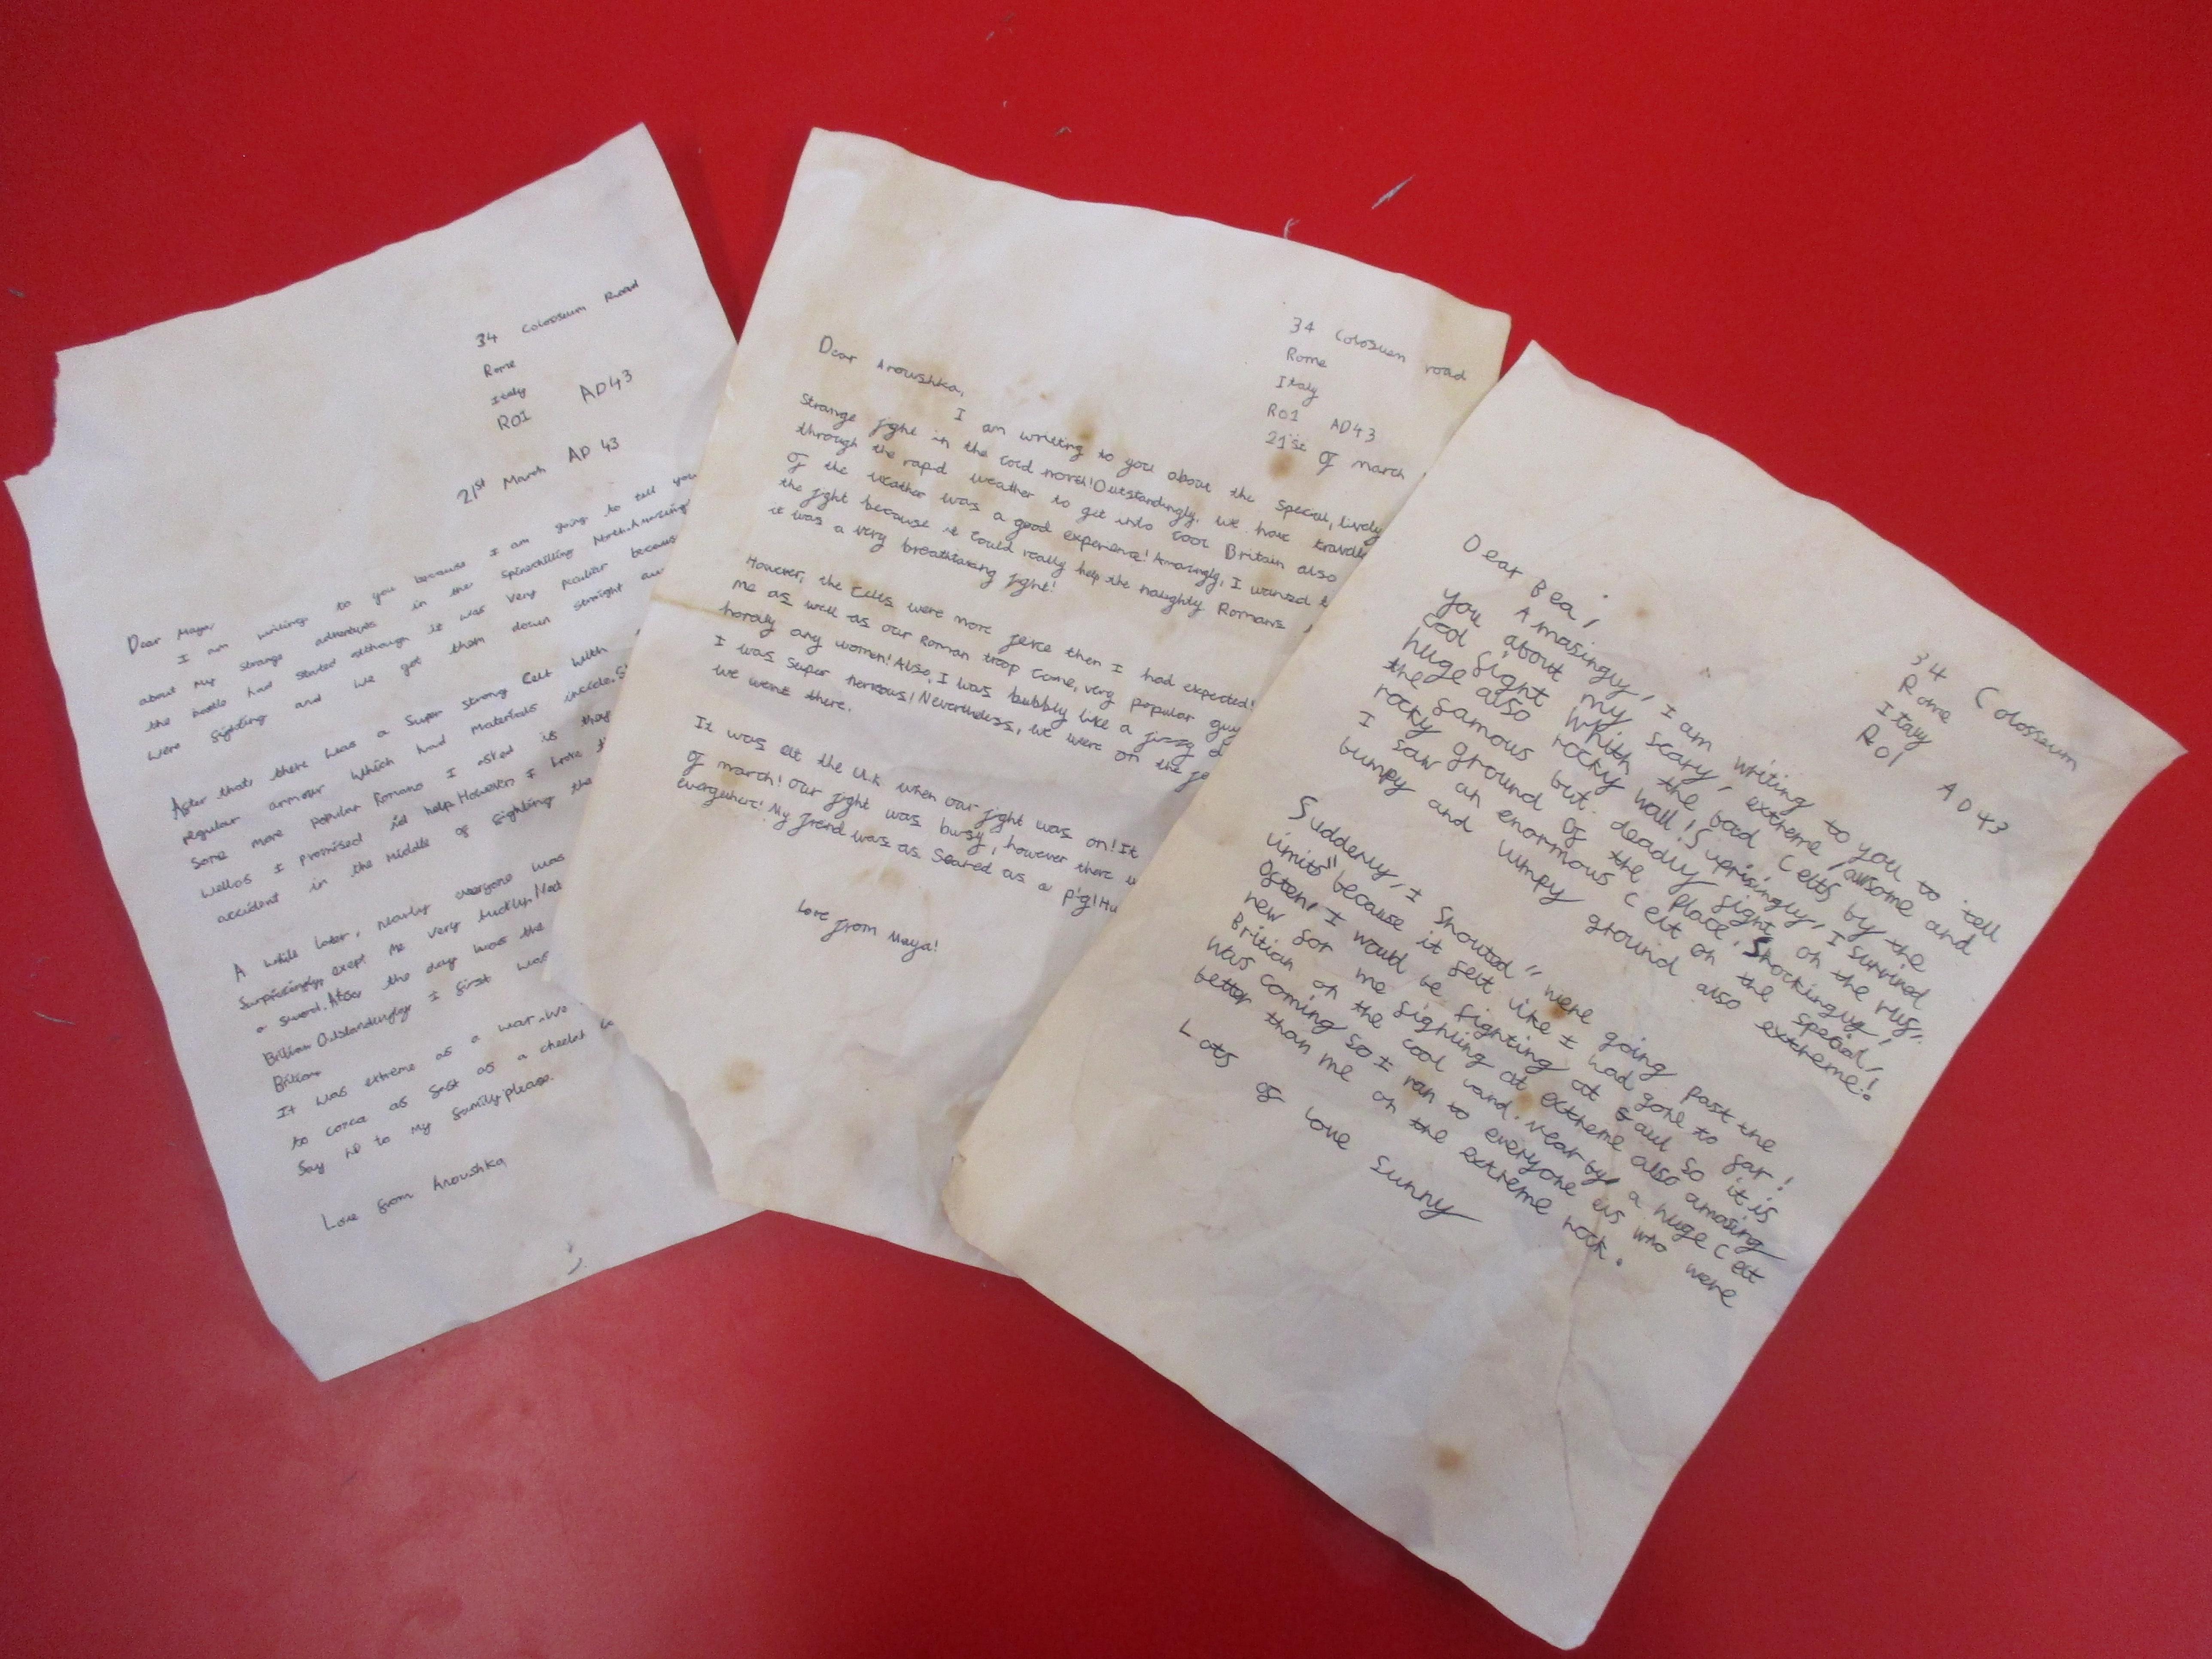 34 Colosseum Road
Rome
Italy
RO1 AD43
21st March AD 43
Dear Maya
I am writing to you because I am going to tell you
about my strange adventures in the spinechilling North. Amazingly
the battle had started although it was very peculiar because
were fighting and we got them down straight
After that, there was a super strong Celt with
regular armour which had materials inside.
Some more popular Romans I asked if they
I promised id help. However, I broke
accident in the middle of fighting the
A while later, nearly everyone was
Surprisingly, exept me very luckily.
a sword. After the day was the
Outstandingly I first was
It was extreme as a war. We
to as fast as a cheetah
Say hi to my family please.
Love from Anoushka
34 Colosuem road
Rome
Italy
RO1 AD43
21st of march
Dear Anoushka,
I am writing to you about the special, lively
strange fight in the cold north! Outstandingly, we have
through the rapid weather to get into cool Britain also
of the weather was a good experience! Amazingly, I wanted
the fight because it could really help the naughty Romans
it was a very breathtaking fight!
However, the Celts were more feirce then I had expected!
me as well as our Roman troop came, very popular guy
hardly any women! Also, I was bubbly like a fizzy
I was super nervous! Nevertheless, we were on the
we went there.
It was at the U.K when our fight was on! It
of march! Our fight was busy, however there
everywhere! My freind was as scared as a pig!
Love from Maya!
34 Colosseum
Rome
Italy
RO1 AD43
Dear Bea,
Amasingly, I am writing to you to tell
you about my scary, extreme, awsome and
cool fight whith the bad Celts by the
huge also rocky wall! Suprisingly, I survived
the famous but deadly fight on the
rocky ground of the place. Shockinguy,
I saw an enormous Celt on the special,
bumpy and lumpy ground also extreme!
Suddenly, I shouted "were going past the
limits" because it felt like I had gone to far!
Often, I would be fighting at Gaul so it is
new for me fighting at extreme also amasing
Britian on the cool land. Near by, a huge Celt
was coming so I ran to everyone els who were
better than me on the extreme rock.
Lots of love Sunny